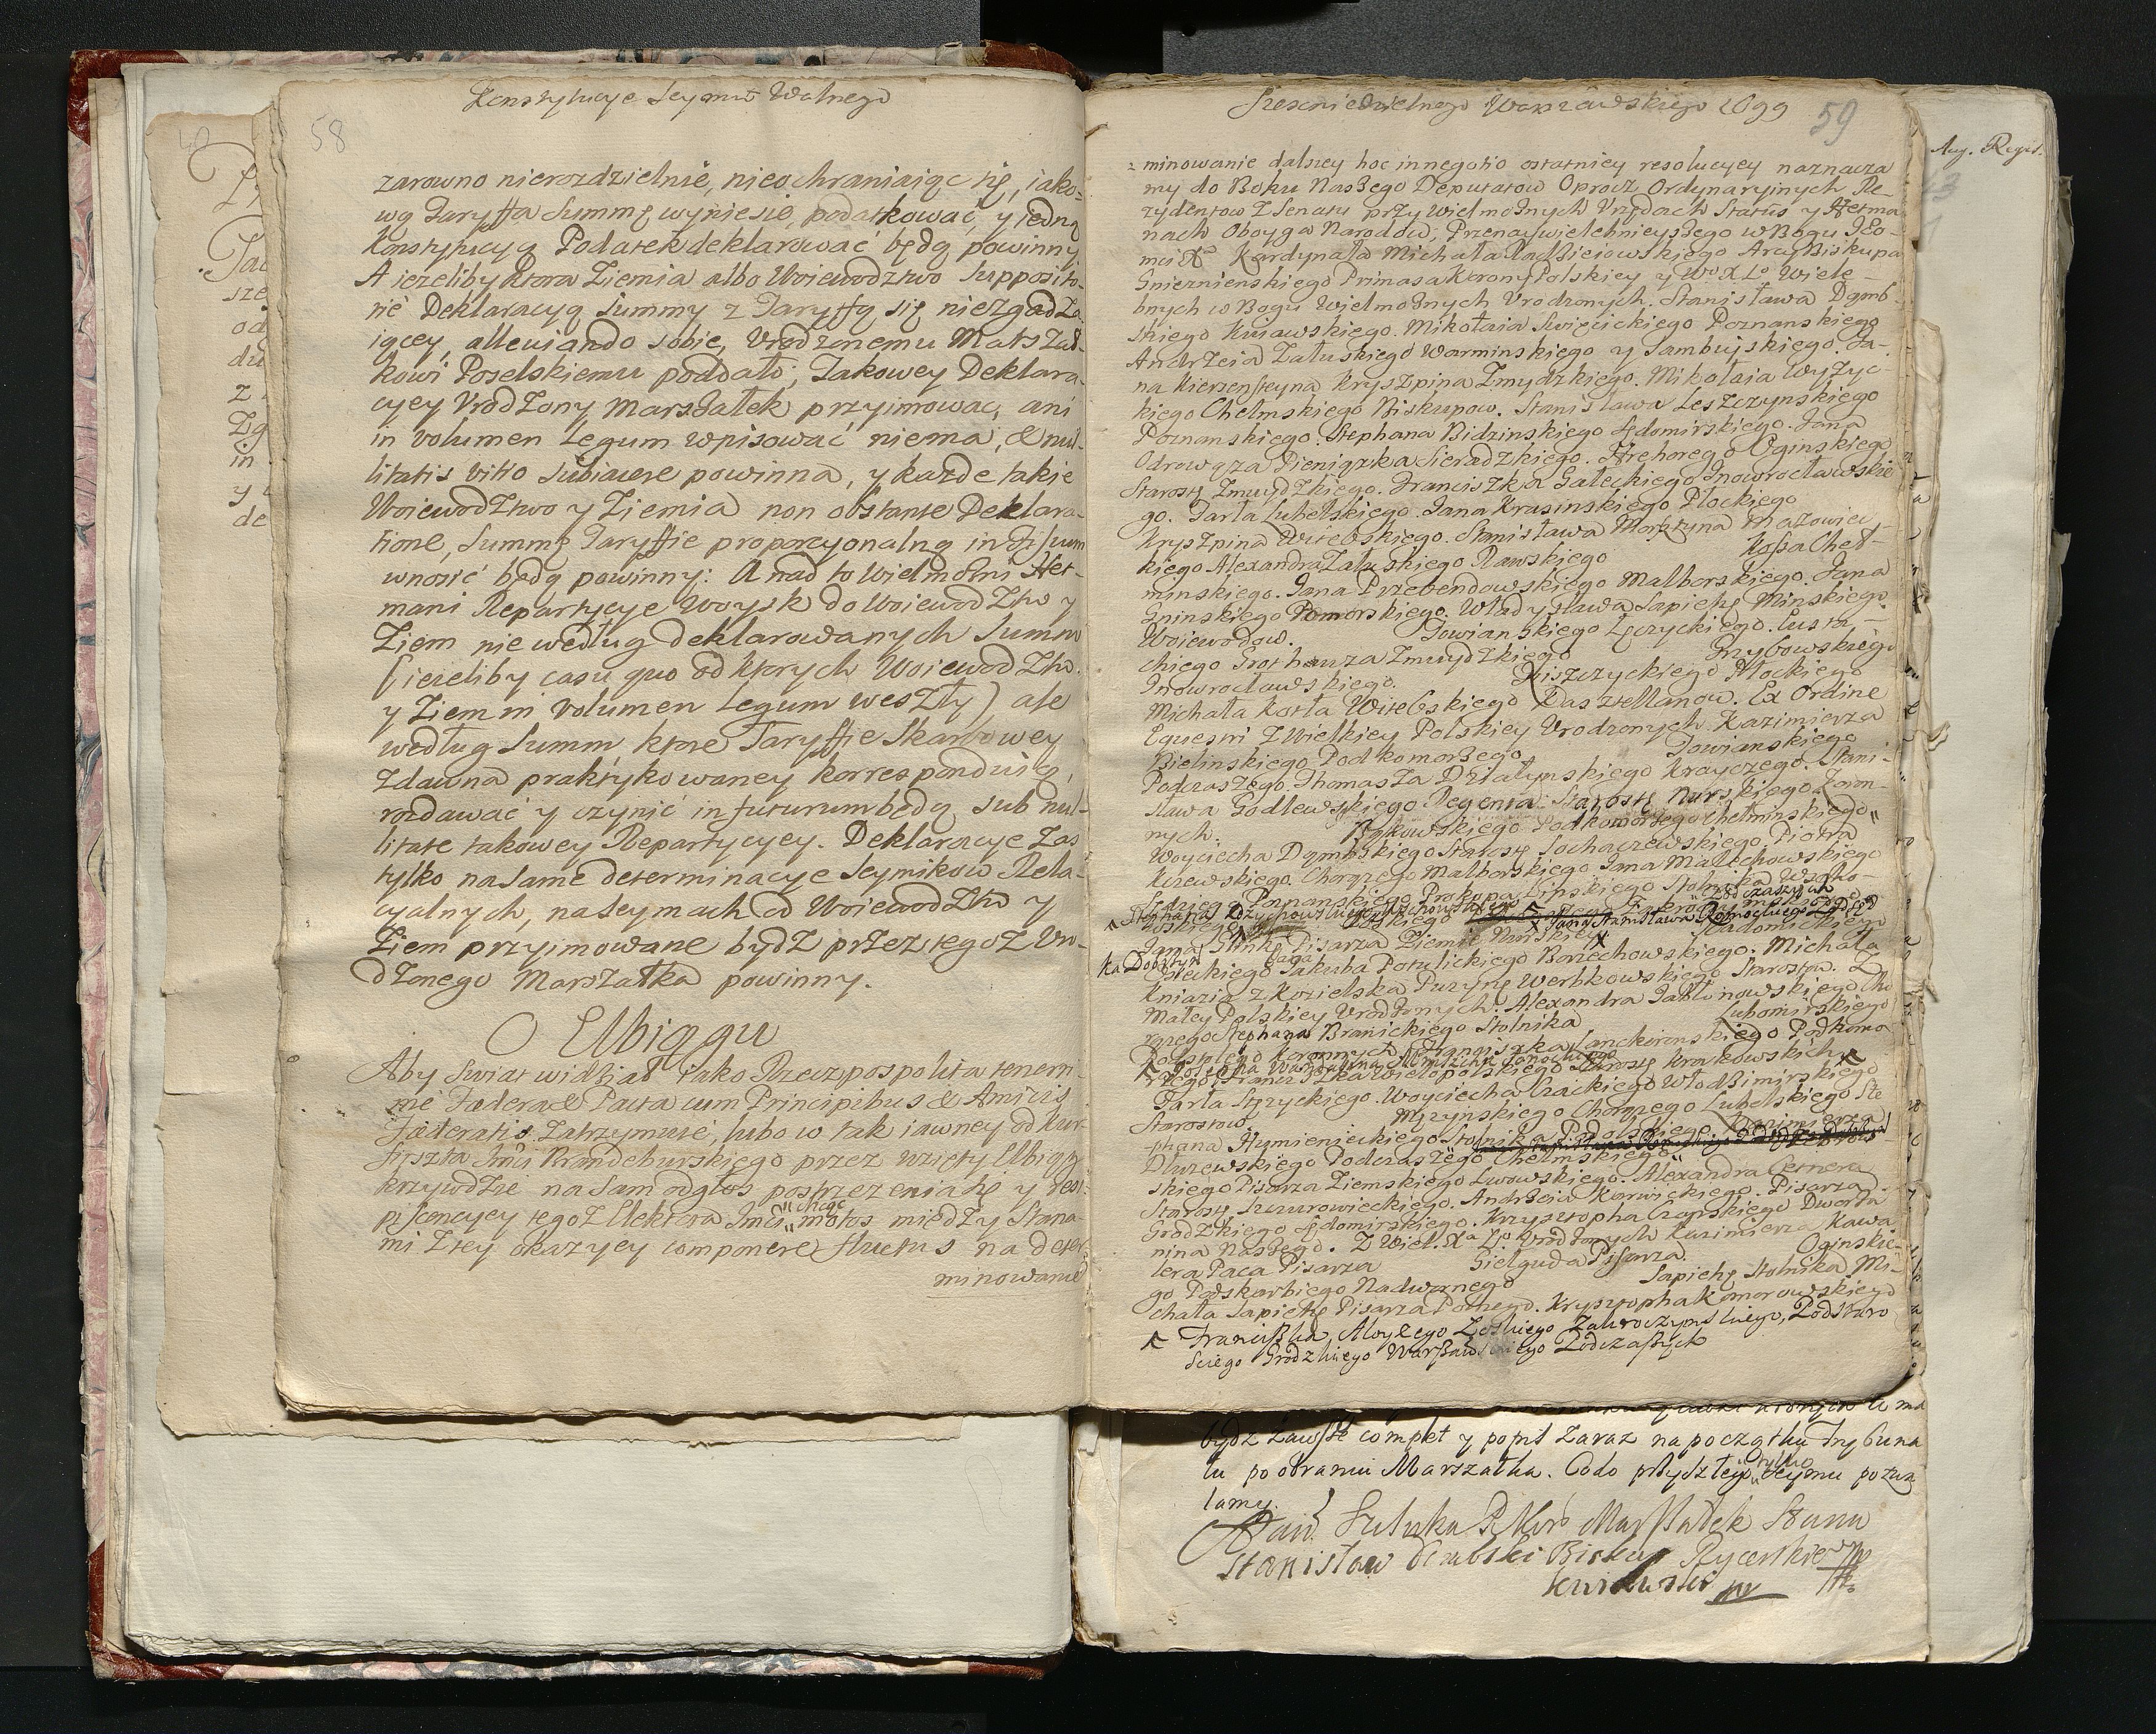 Konstytucye Seymu Walnego
58
zarowno nierozdzielnie, nieochraniaiąc się, iako-
wą Taryffa Summę wyniesie, podatkować, y iedną
Konstytucyą Podatek deklarować będą powinny
A ieżeliby ktora Ziemia albo Woiewodztwo supposito-
rie Deklaracyą Summy z Taryffą się niezgadza-
iącey, alleuiando sobie, Urodzonemu Marszał-
kowi Poselskiemu poddało; Takowey Deklara-
cyey Vrodzony Marszałek przyimować, ani
in volumen Legum wpisować niema, & nul-
litatis vitio subiacere powinna, y każde takie
Woiewodztwo y Ziemia non obstante Deklara-
tione, Summę Taryffie proporcyonalną in
wnosić będą powinny: A nad to Wielmożni Het-
mani Repartycye Woysk do Woiewodztw y
Ziem nie według deklarowanych Summ
(ieżeliby casu quo od ktorych Woiewodztw
y Ziem in volumen Legum weszły) ale
według Summ, ktore Taryffie Skarbowey
zdawna praktykowaney korresponduią,
rozdawać y czynić in futurum będą sub nul-
litate takowey Repartycyey. Deklaracye zaś
tylko na same determinacye Seymikow Rela-
cyalnych, na Seymach od Woiewodztw y
Ziem przyimowane bydz przez tegoż Vro-
dzonego Marszałka powinny.
O Elbiągu
Aby Swiat widział iako Rzeczpospolita
Fædera & Pacta cum Principibus & Amicis
Fæderatis zatrzymuie, lubo w tak iawney od Kur-
firszta Jmci Brandeburskiego przez wzięty Elbiąg
krzywdzie na sam odgłos postrzezenia się y resi-
piscencyey tegoż Elektora Jmci chcąc motos między Stana-
mi z tey okazyey componere fluctus na deter-
minowanie
Szescniedzielnego Warszawskiego 1699
59
minowanie dalszey hoc in negotio ostatniey resolucyey naznacza
my do Boku Naszego Deputatow Oprocz Ordynaryinych Re-
zydentow z Senatu przy Wielmożnych Vrzędach Status y Hetma
nach Oboyga Narodow, Przenaywielebnieyszego w Bogu Jeo-
mci Xa Kardynała Michała Radzieiowskiego Arcybiskupa
Gnieznienskiego Primasa Korony Polskiey y W. X. Lo Wiele-
bnych w Bogu Wielmożnych Vrodzonych. Stanisława Dąmb-
skiego Kuiawskiego. Mikołaia Swięcickiego Poznanskiego
Andrzeia Załuskiego Warminskiego y Sambiiskiego. Ja-
na Kierzensteyna Kryszpina Zmydzkiego. Mikołaia Wyżyc-
kiego Chełmskiego Biskupow. Stanisława Leszczynskiego
Poznanskiego. Stephana Bidzinskiego Sędomirskiego. Jana
Odrowąza Pieniązka Sieradzkiego. Hrehorego Oginskiego
Starosty Zmuydzkiego. Franciszka Gałeckiego Inowrocławskie
go. Tarła Lubelskiego. Jana Krasinskiego Płockiego
Kryszpina Witebskiego. Stanisława Morsztyna Mazowiec
kiego Alexandra Załuskiego Rawskiego Kosa Cheł-
minskiego. Jana Przebendowskiego Malborskiego. Jana
Gninskiego Pomorskiego. Władysława Sapiehę Minskiego
Woiewodow. Towianskiego Łęczyckiego. Eusta-
chiego Grothauza Zmuydzkiego Grzybowskiego
Inowrocławskiego. Kiszczyckiego Płockiego
Michała Kotła Witebskiego Kasztellanow. Ex Ordine
Equestri z Wielkiey Polskiey Vrodzonych Kazimierza
Bielinskiego Podkomorzego Towianskiego
Podczaszego. Thomasza Działynskiego Krayczego. Stani-
sława Godlewskiego Regenta Starosty Nurskiego Koron-
nych. Bąkowskiego Podkomorzego Chełminskiego
Woyciecha Dąmbskiego Starosty Sochaczewskiego. Piotra
Kczewskiego Chorązego Malborskiego Jana Małachowskiego
Jana Glinki Pisarza Ziemie Nurskiey
Jakuba Potulickiego Borzechowskiego. Michała
Kniazia z Kozielska Puzynę Werbkowskiego Starostow. Z
Małey Polskiey Vrodzonych. Alexandra Jabłonowskiego Cho
rążego Stephana Branickiego Stolnika Lubomirskiego
Podstolego Koronnych Lanckorenskiego Podkomo
rzego, Franciszka Wielopolskiego Starosty Krakowskich
Tarła Stęzyckiego. Woyciecha Czackiego Włodzimirskiego
Starostow. Męzynskiego Chorązego Lubelskiego Ste
phana Humienieckiego Stolnika Podolskiego. Kazimierza
Dłuzewskiego Podczaszego Chełmskiego
skiego Pisarza Ziemskiego Lwowskiego. Alexandra Cetnera
Starosty Szczurowieckiego. Andrzeia Karwickiego. Pisarza
Grodzkiego Sędomirskiego. Krzysztopha Czyrskiego Dworza
nina Naszego. Z Wiel. Xa Lo Vrodzonych Kazimierza Kawa
lera Paca Pisarza Gielguda Pisarza. Oginskie-
go Podskarbiego Nadwornego Sapiehę Stolnika Mi-
chała Sapiehę Pisarza Polnego. Krysztopha Komorowskiego
Franciszka, Aloyzego Zakroczymskiego, Podstaro
sciego Grodzkiego Warszawskiego Podczaszych
Aug. Regis.
bydz zawsze complet y popis zaraz na początku Trybuna
łu po obraniu Marszałka. Co do przyszłego tylko Seymu pozwa
lamy.
Marszałek
Stanisław Dembski Biskup
Kuiawski mp